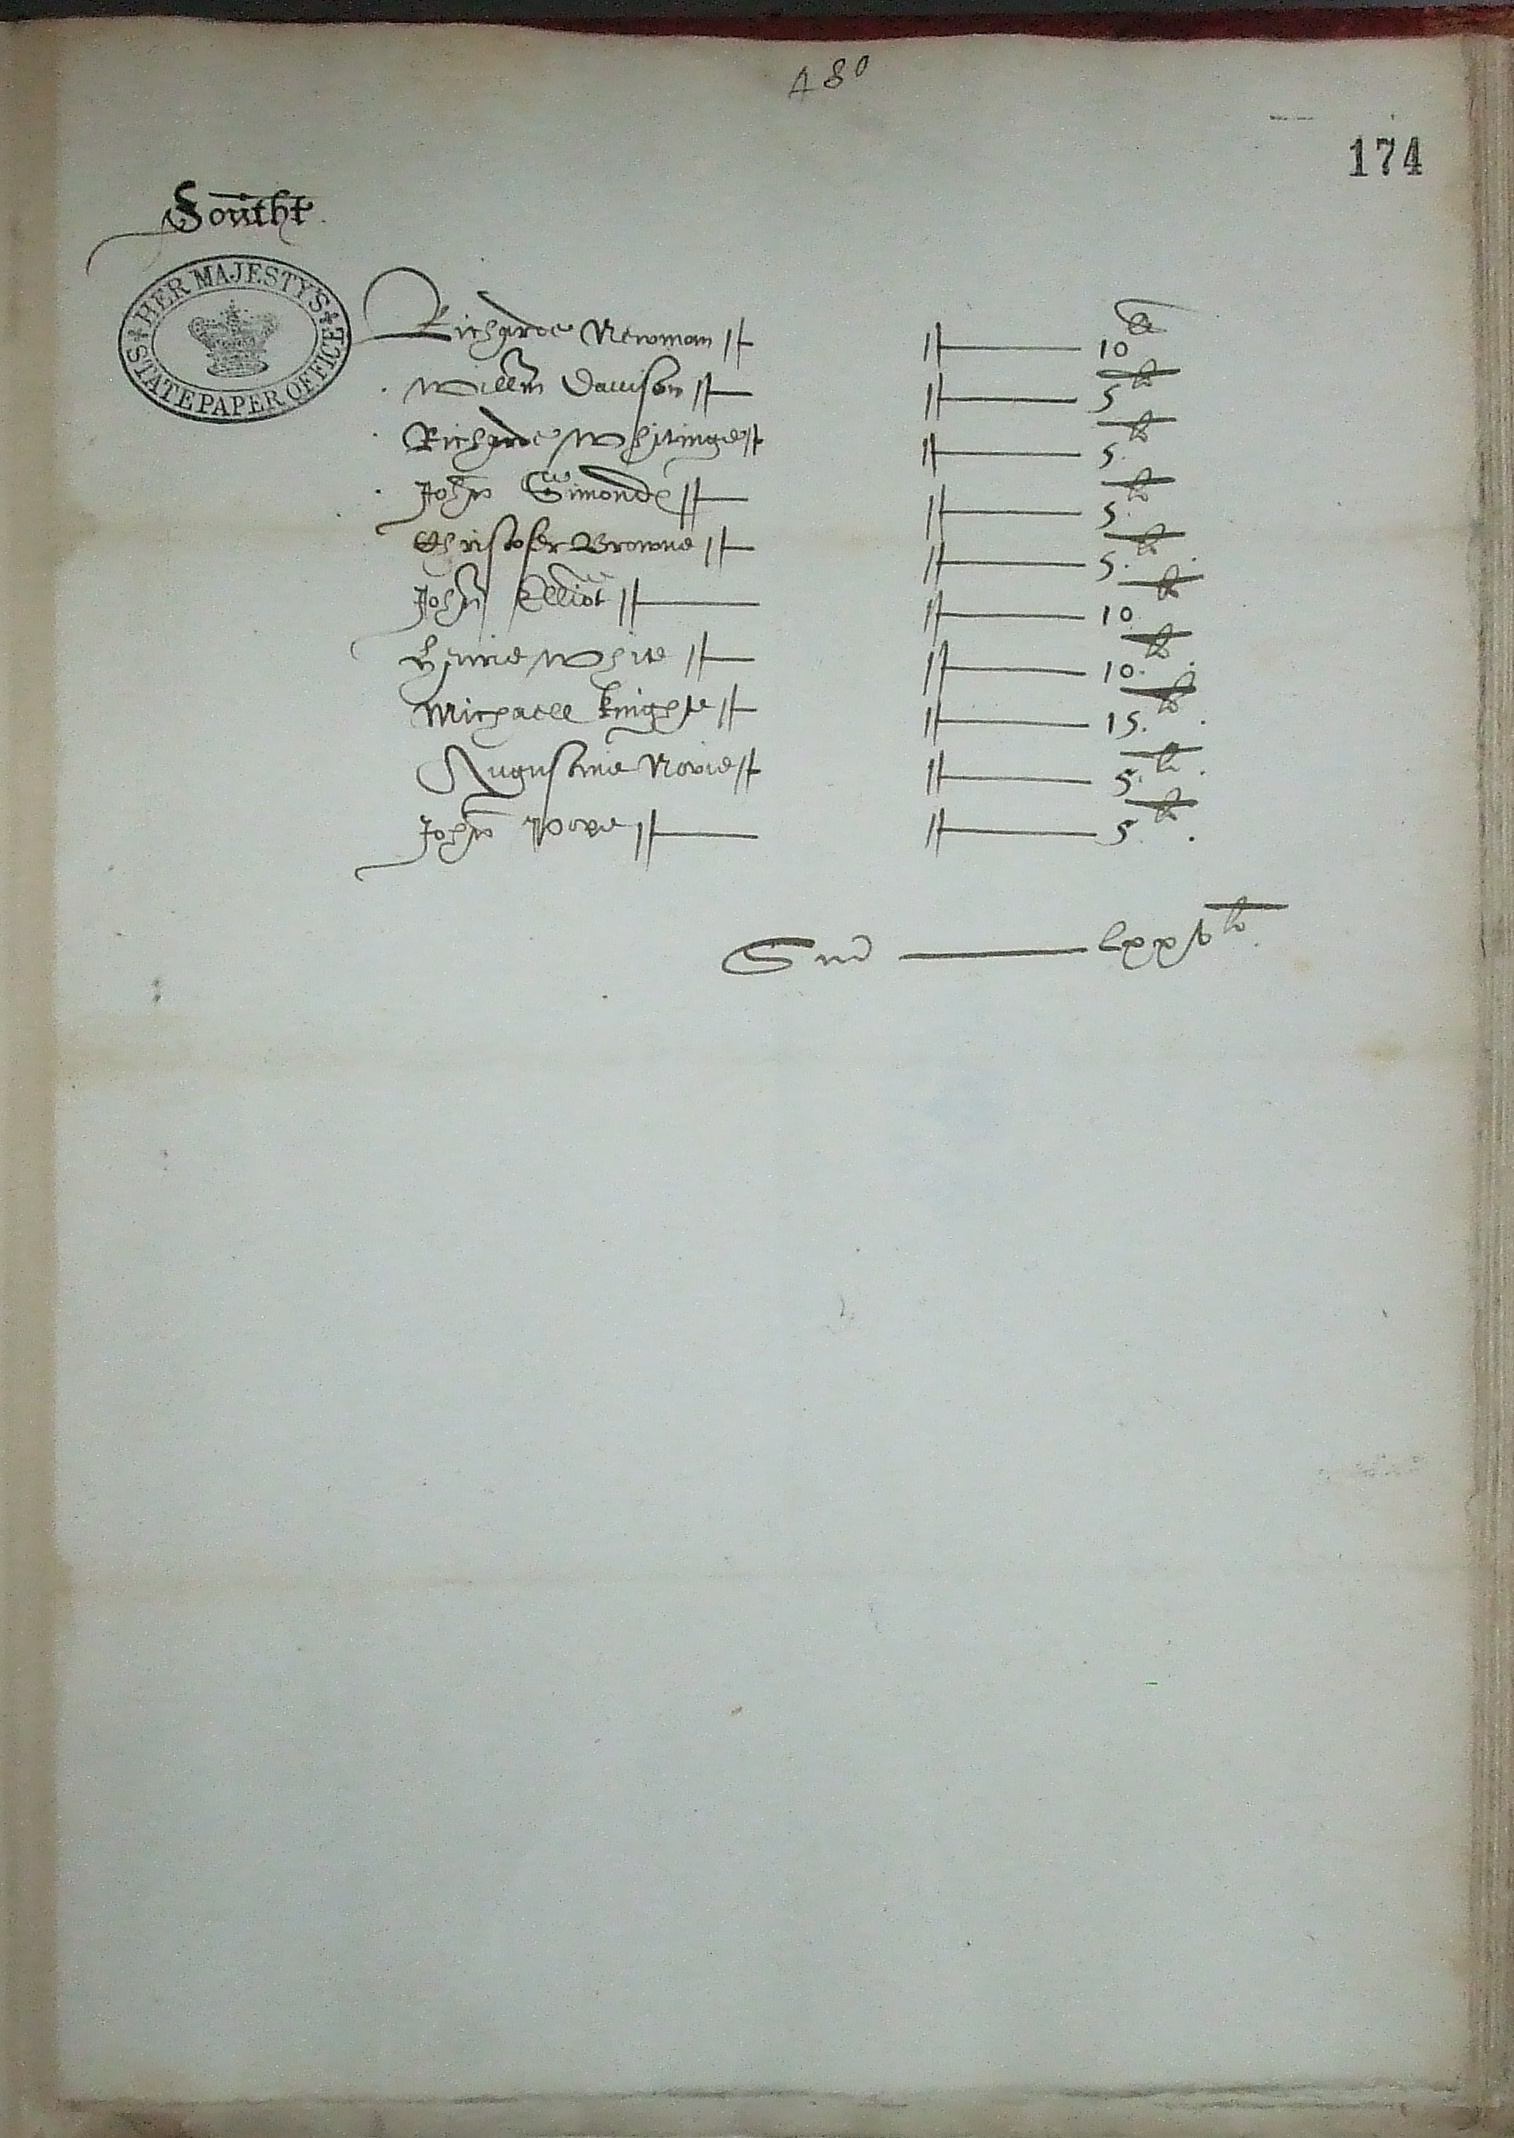 480
174
Southt
HER MAJESTY'S STATE PAPER OFFICE
Richarde Newman 10 li
Willm Davison 5 li
Richarde Whitinge 5 li
John Simonde 5 li
Christofer Browne 5 li
John Elliot 10 li
Henrie White 10 li
Michaell Knight 15 li
Augustine 5 li
John 5 li
Sum lxxv li